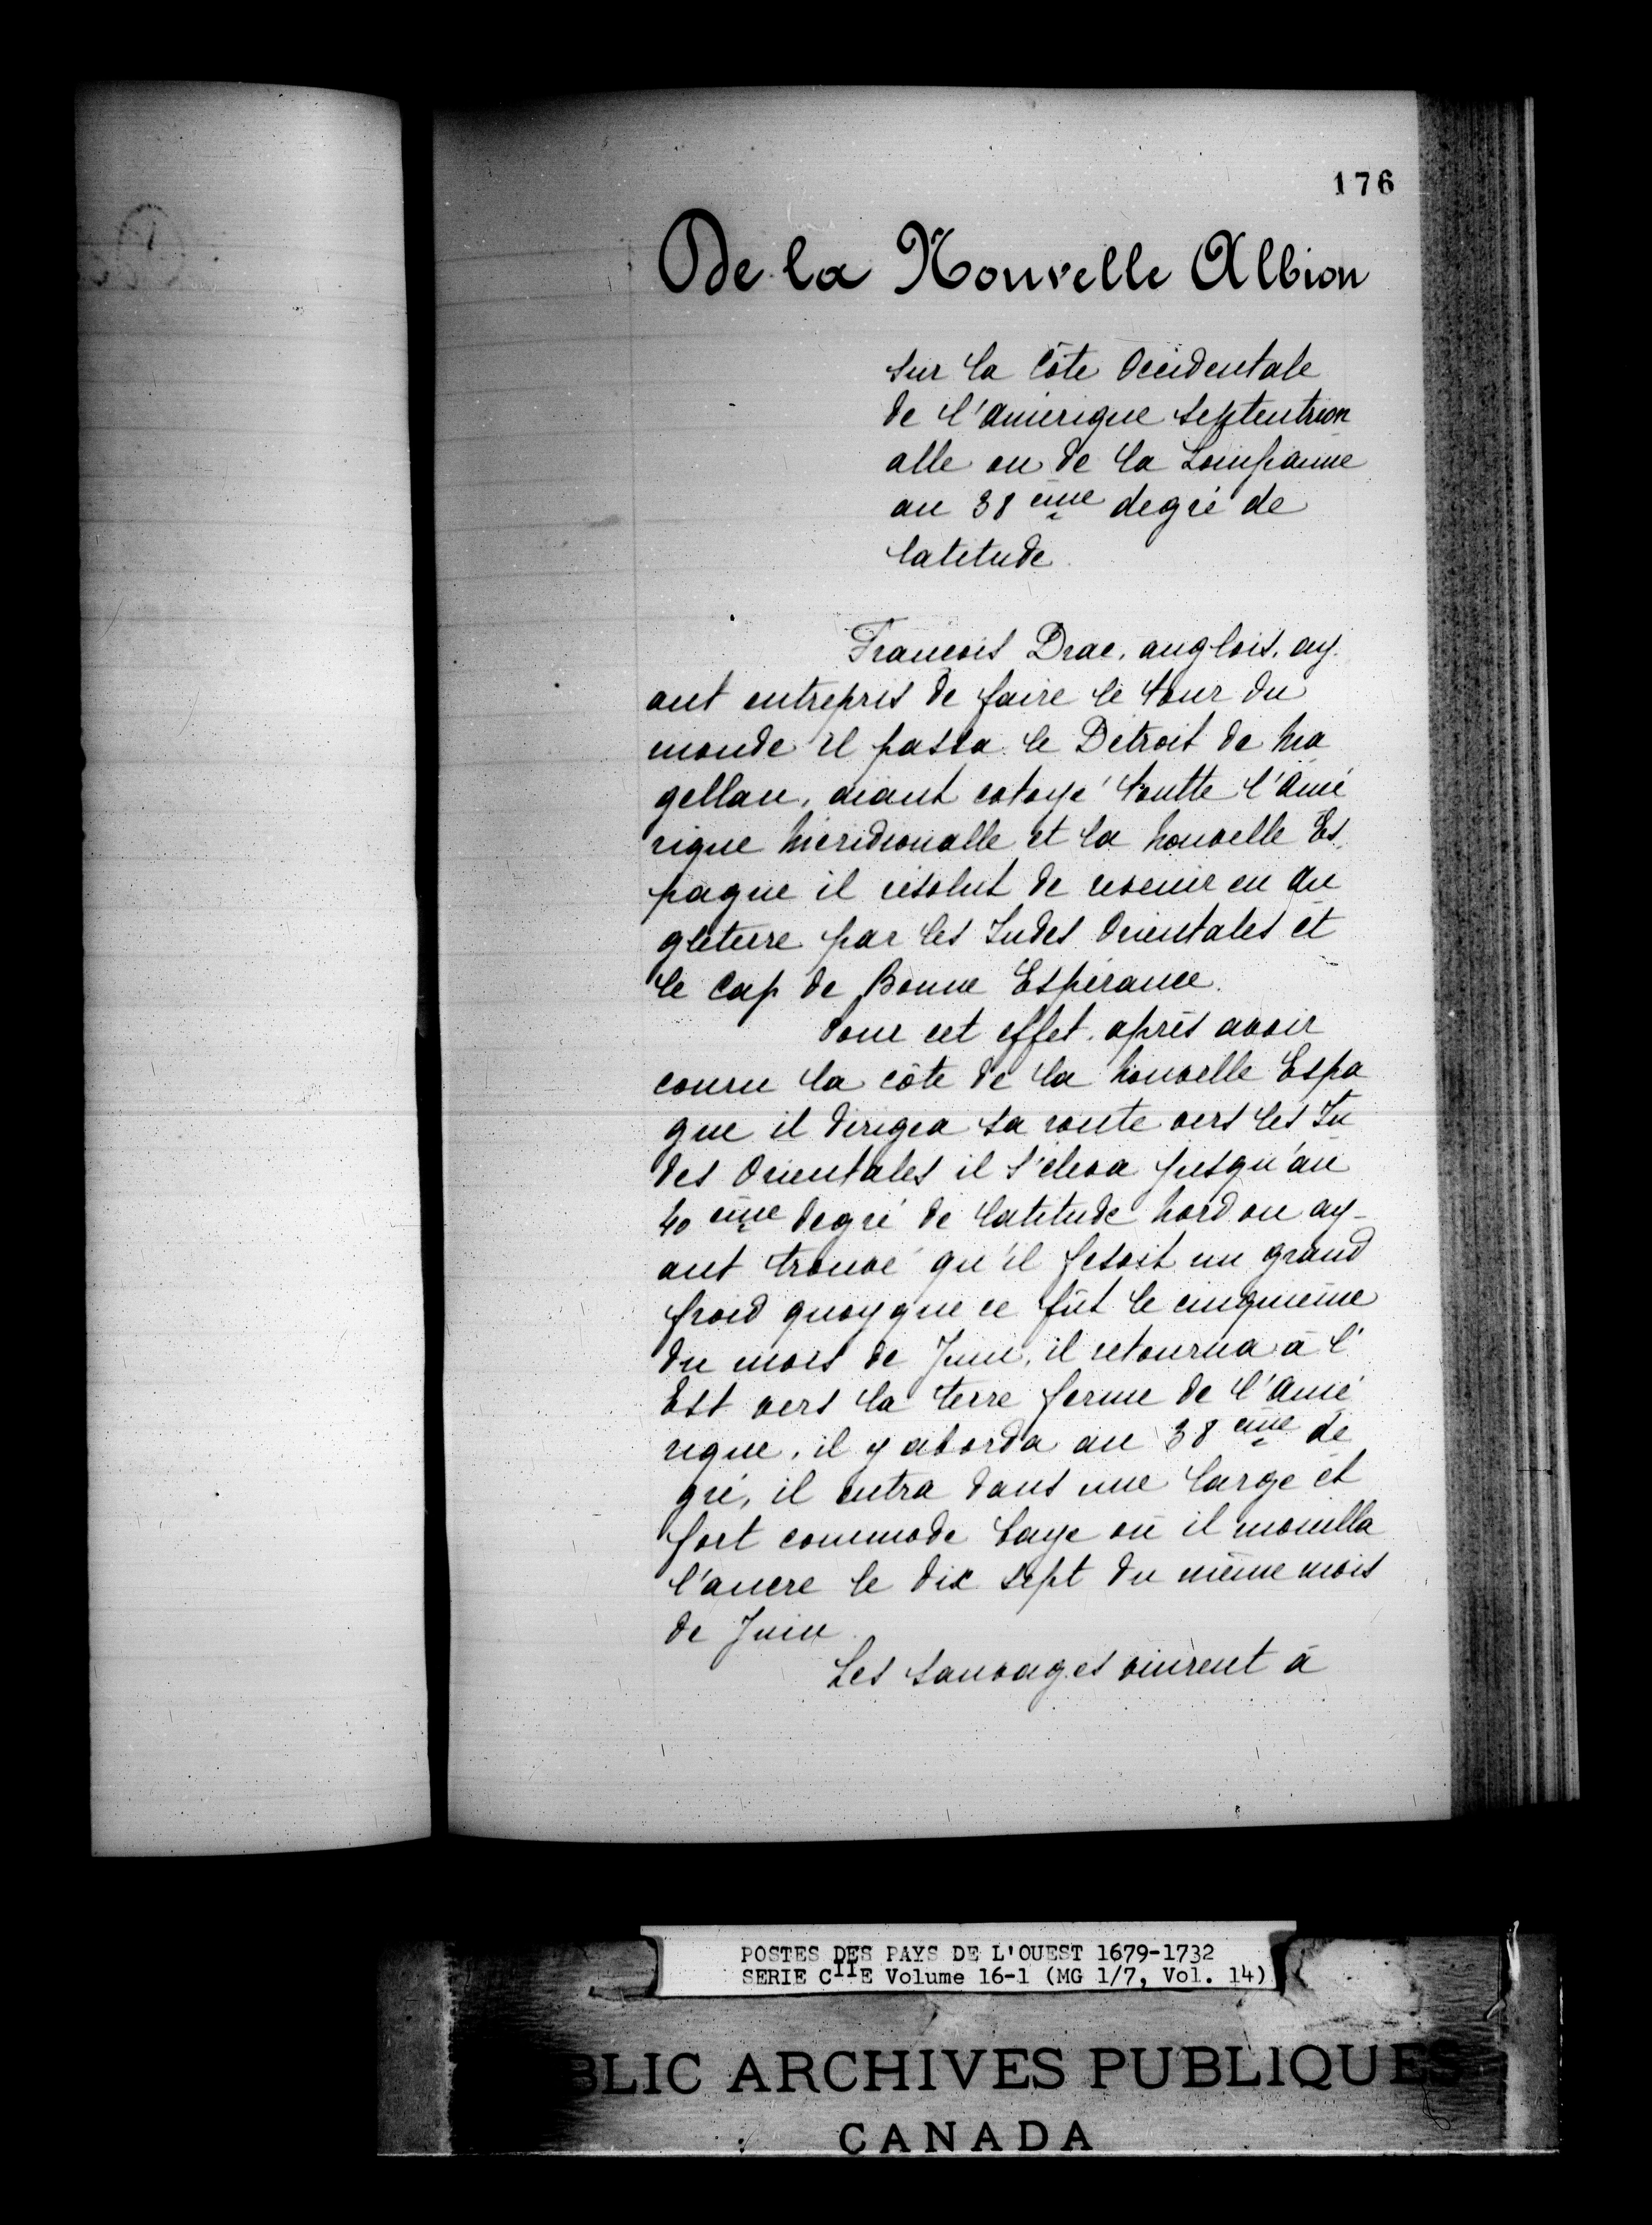 176
De la Nouvelle Albion
sur la Côte Occidentale
de l'amérique septentrion
alle ou de la Louisianne
au 38 eme degré de
latitude
François Drac, anglois, ay
ant entrepris de faire le tour du
monde il passa le Détroit de Ma
gellan, aiant cotoyé toutte l'Amé
rique Méridionalle et la Nouvelle Es
pagne il résolut de revenir en An
gleterre par les Indes Orientales et
le Cap de Bonne Espérance.
Pour cet effet, après avoir
couru la côte de la Nouvelle Espa
gne il dirigea sa route vers les In
des Orientales il s'éleva jusqu'au
40 eme degré de latitude Nord ou ay-
ant trouvé qu'il fesoit un grand
froid quoyque ce fût le cinquième
du mois de Juin, il retourna à l'
Est vers la terre ferme de l'Amé
rique, il y aborda au 38 eme de
gré, il entra dans une large et
fort commode baye où il mouilla
l'ancre le dix sept du même mois
de Juin
Les sauvages vinrent à
POSTES DES PAYS DE L'OUEST 1679-1732
SERIE CIIE Volume 16-1 (MG 1/7, Vol. 14)
BLIC ARCHIVES PUBLIQUES
CANADA